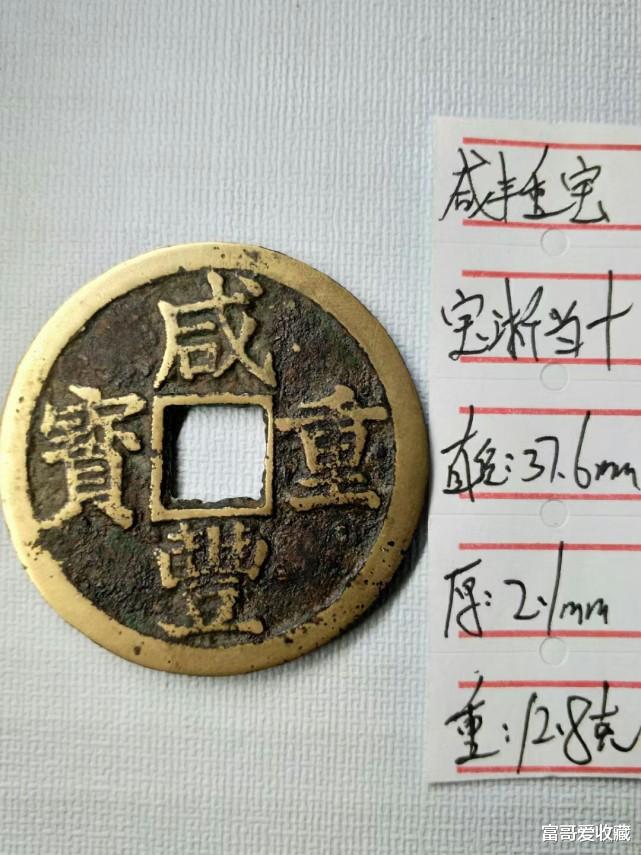 咸豐重寶
咸丰重宝
宝浙当十
直径:37.6mm
厚:2.1mm
重:12.8克
富哥爱收藏